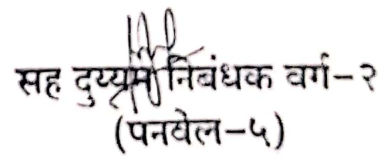 सह दुय्यम निबंधक वर्ग-२
(पनवेल-५)